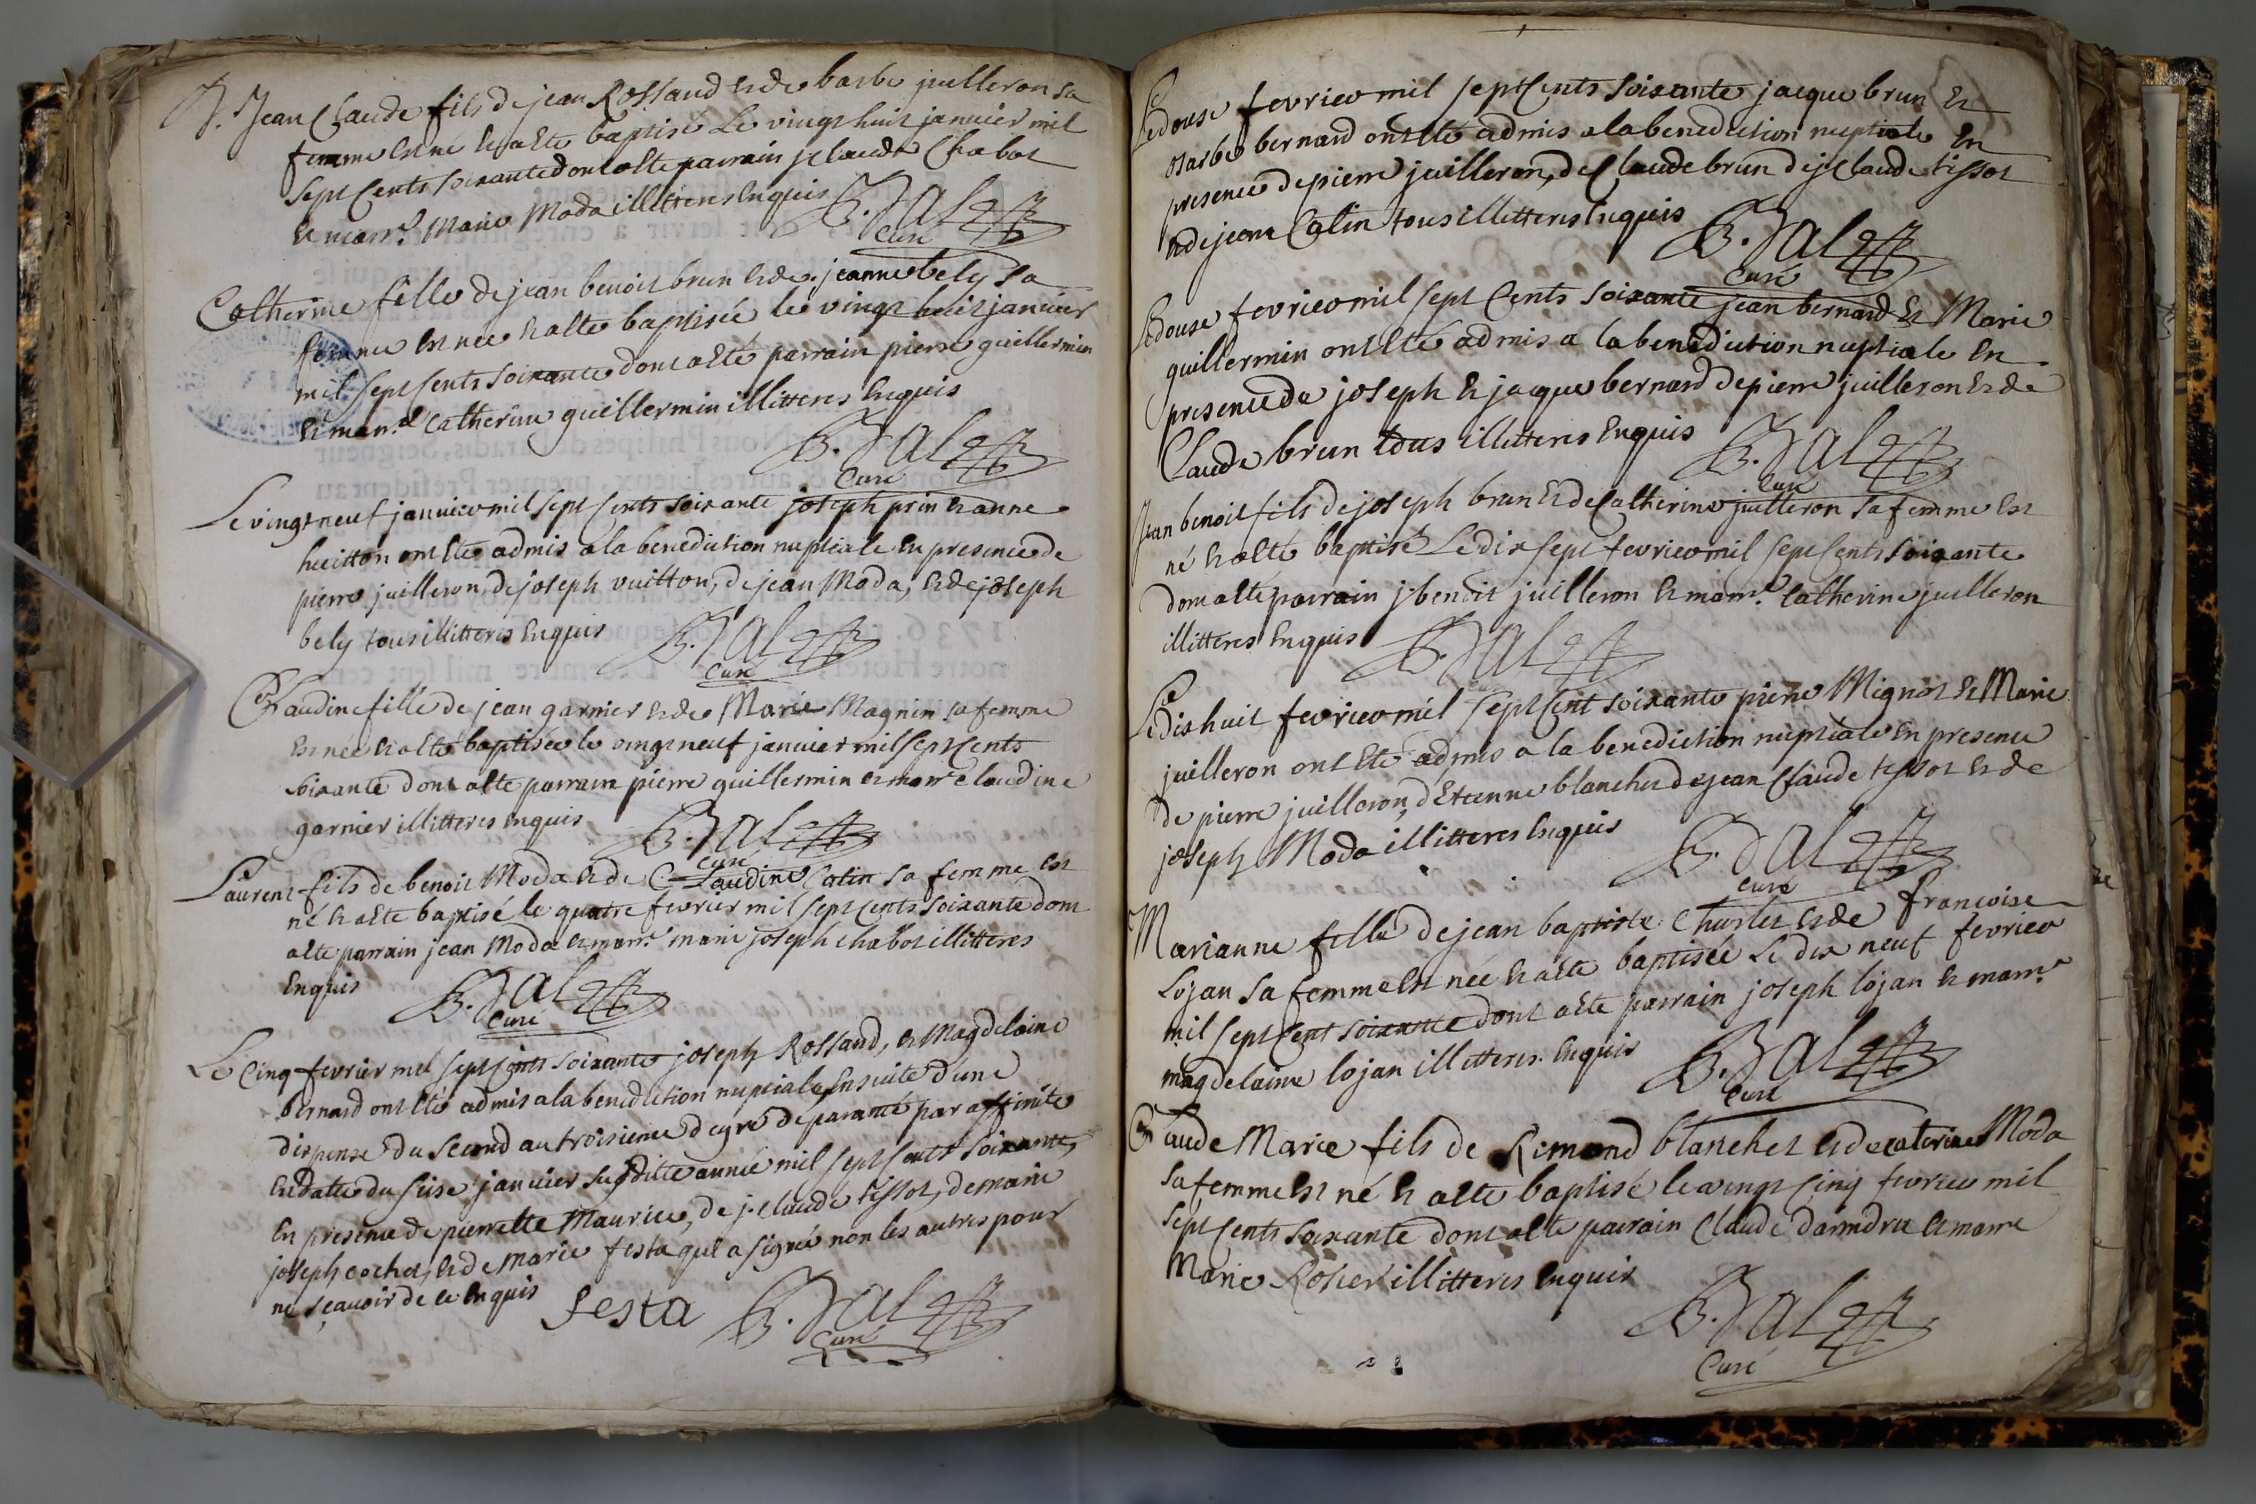 Jean Claude fils de jean Rossaud et de barbe juilleron sa
femme est ne et a ete baptisé Le vingt huit janvier mil
sept Cents soixante dont a ete parrain j. claude Chabot
et marr.e Marie Moda illitteres Enquis
Curé
Catherine fille de jean benoit brun et de jeanne bely sa
femme est née et a ete baptisée le vingt huit janvier
mil sept Cents soixante dont a eté parrain pierre guillermin
et marr.e Catherine guillermin illitteres Enquis
Curé
Le vingt neuf janvier mil sept Cents soixante joseph prin et anne
huitton ont ete admis a la benediction nuptiale En presence de
pierre juilleron, de joseph vuitton, de jean Moda, et de joseph
bely tous illitteres Enquis
Curé
Claudine fille de jean garnier et de Marie Magnin sa femme
est née et a ete baptisée le vingt neuf janvier mil sept Cents
soixante dont a ete parrain pierre guillermin et marr.e claudine
garnier illitteres Enquis
Curé
Laurent fils de benoit Moda et de Claudine Catin sa femme est
né et a ete baptisé le quatre fevrier mil sept Cents soixante dont
a ete parrain jean Moda et marr.e marie joseph chabot illitteres
Enquis
Curé
Le Cinq fevrier mil sept Cents soixante joseph Rossaud, et Magdelaine
bernard ont eté admis a la benediction nuptiale Ensuite d'une
dispense du second au troisieme degré de paranté par affinité
En datte du seise janvier susditte année mil sept Cents soixante,
En presence de pierrette Maurice, de j. claude tissot, de marie
joseph cochet, et de marie festa qui a signé non les autres pour
ne sçavoir de ce Enquis
festa
Curé
Le douse fevrier mil sept Cents soixante jacque brun et
barbe bernard ont eté admis a la benediction nuptiale En
presence de pierre juilleron, de Claude brun de j. Claude tissot
et de jean Catin tous illitteres Enquis
Curé
Le douse fevrier mil sept Cents soixante jean bernard et Marie
guillermin ont Eté admis a la benediction nuptiale En
presence de joseph et jacque bernard de pierre juilleron et de
Claude brun tous illitteres Enquis
Curé
Jean benoit fils de joseph brun et de Catherine juilleron sa femme est
né et a eté baptisé Le dix sept fevrier mil sept Cents soixante
dont a ete parrain j. benoit juilleron et marr.e Catherine juilleron
illitteres Enquis
Le dix huit fevrier mil sept Cent soixante pierre Mignot et Marie
juilleron ont Eté admis a la benediction nuptiale En presence
de pierre juilleron, d'Etienne blanchet de jean Claude tissot et de
joseph Moda illitteres Enquis
Curé
Marianne fille de jean baptiste Charlet et de francoise
Lojan sa femme est née et a ete baptisée Le dix neuf fevrier
mil sept Cent soixante dont a ete parrain joseph lojan et marr.e
magdelaine lojan illitteres Enquis
Curé
Claude Marie fils de Rimond blanchet et de caterine Moda
sa femme est né et a ete baptisé le vingt Cinq fevrier mil
sept Cents soixante dont a ete parrain Claude et marre
Marie Rosier illitteres Enquis
Curé